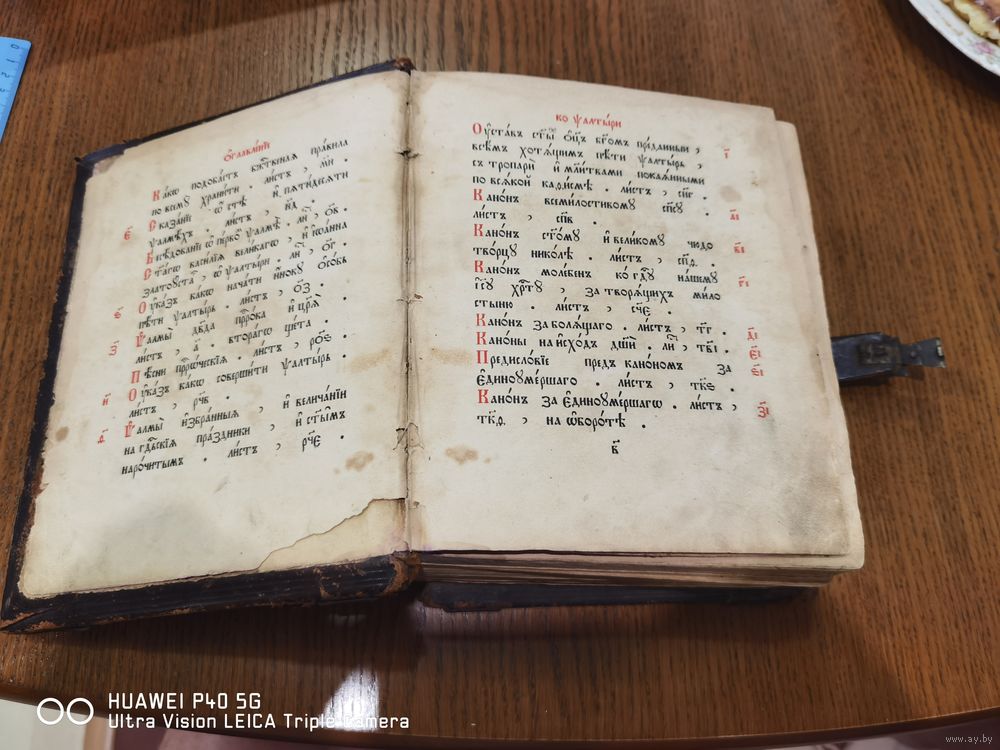 Ѻ҆главле́нїѐ
Ка́кѡ подоба́етъ бж҃е́ственаѧ пра́вила
по всемꙋ̀ храни́ти . ли́стъ ,
Сказа́нїе ѡ҆ и҆ пѧти́десѧти
ѱалмѣ́хъ . ли́стъ , н҃д .
Бесѣ́дованїе ѡ҆ пе́рвомъ ѱалмѣ̀ .
Ст҃а́гѡ васи́лїѧ вели́кагѡ , и҆ і҆ѡа́нна
златоꙋ́стаго , ѡ҆ ѱалты́ри . ли́ , ѻ҃г .
Оу҆ка́зъ ка́кѡ нача́ти и҆́нокꙋ ѻ҆со́бь
пѣ́ти ѱалты́рь . ли́стъ , ѻ҃з .
Ѱалмы̀ дв҃да прⷪ҇ро́ка и҆ цр҃ѧ̀
ли́стъ , а҃ . втора́гѡ щета̀ .
Пѣ́сни прⷪ҇ро́ческїѧ . ли́стъ , р҃ѻѕ .
Оу҆ка́зъ ка́кѡ соверши́ти ѱалты́рь .
ли́стъ , р҃чв .
Ѱалмы̀ и҆збра́нныѧ , и҆ велича́нїи
на гдⷭ҇ьскїѧ пра́здники , и҆ ст҃ы́мъ
наро́читымъ . ли́стъ , р҃чє .
є҃
ѕ҃
з҃
и҃
д҃
ко ѱалты́ри
Оу҆ста́въ ст҃ы́мъ ѻ҆ц҃е́мъ бг҃омъ пре́данный ,
всѣ́мъ хотѧ́щимъ пѣ́ти ѱалты́рь ,
съ тропарѝ и҆ мл҃и́твами покаѧ́нными
по всѧ́кой каѳи́смѣ . ли́стъ , с҃пг .
Кано́нъ всеми́лостивомꙋ сп҃сꙋ .
ли́стъ , с҃пв .
Кано́нъ ст҃о́мꙋ и҆ вели́комꙋ чюдо
тво́рцꙋ нико́лѣ . ли́стъ , с҃пд .
Кано́нъ моле́бенъ ко гдⷭ҇ꙋ на́шемꙋ
і҆сꙋ хрⷭ҇тꙋ̀ , за творѧ́щихъ мило
стыню . ли́стъ , с҃чє .
Кано́нъ за болѧ́щаго . ли́стъ , т҃г .
Кано́ны на и҆схо́дъ дш҃и . ли́ , т҃ві .
Предисло́вїе предъ кано́номъ за
є҆диноꙋме́ршаго . ли́стъ , т҃кѕ .
Кано́нъ за є҆диноꙋме́ршагѡ . ли́стъ ,
т҃кд , на ѡ҆боро́тѣ .
в҃
і҃
а҃і
в҃і
г҃і
д҃і
є҃і
ѕ҃і
з҃і
HUAWEI P40 5G
Ultra Vision LEICA Triple Camera
www.ay.by